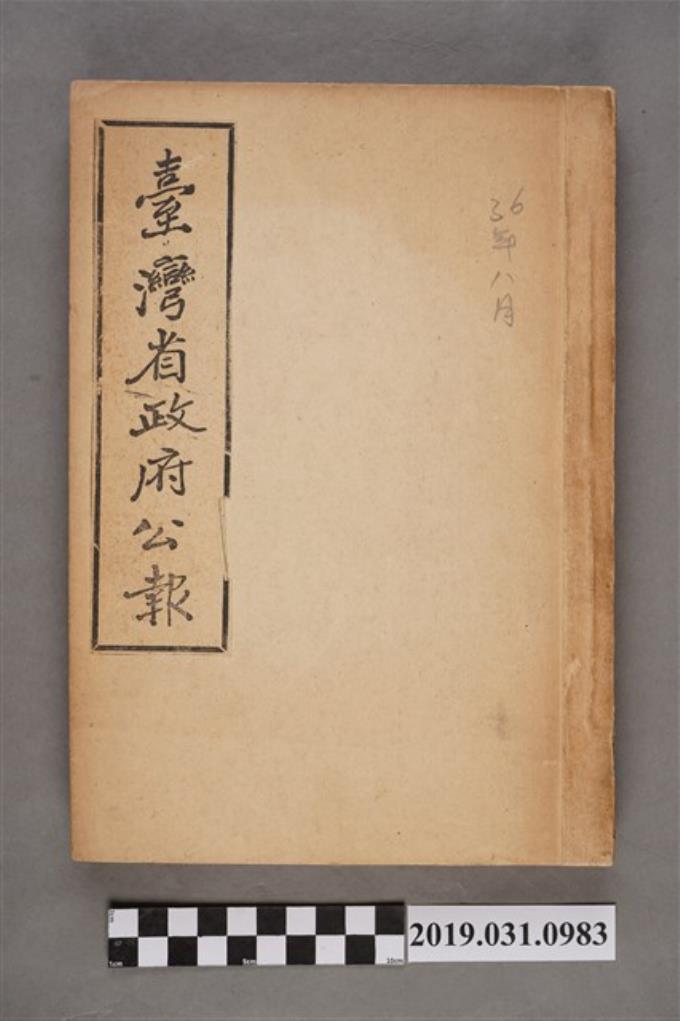 臺灣省政府公報
36年八月
2019.031.0983
5cm
10cm